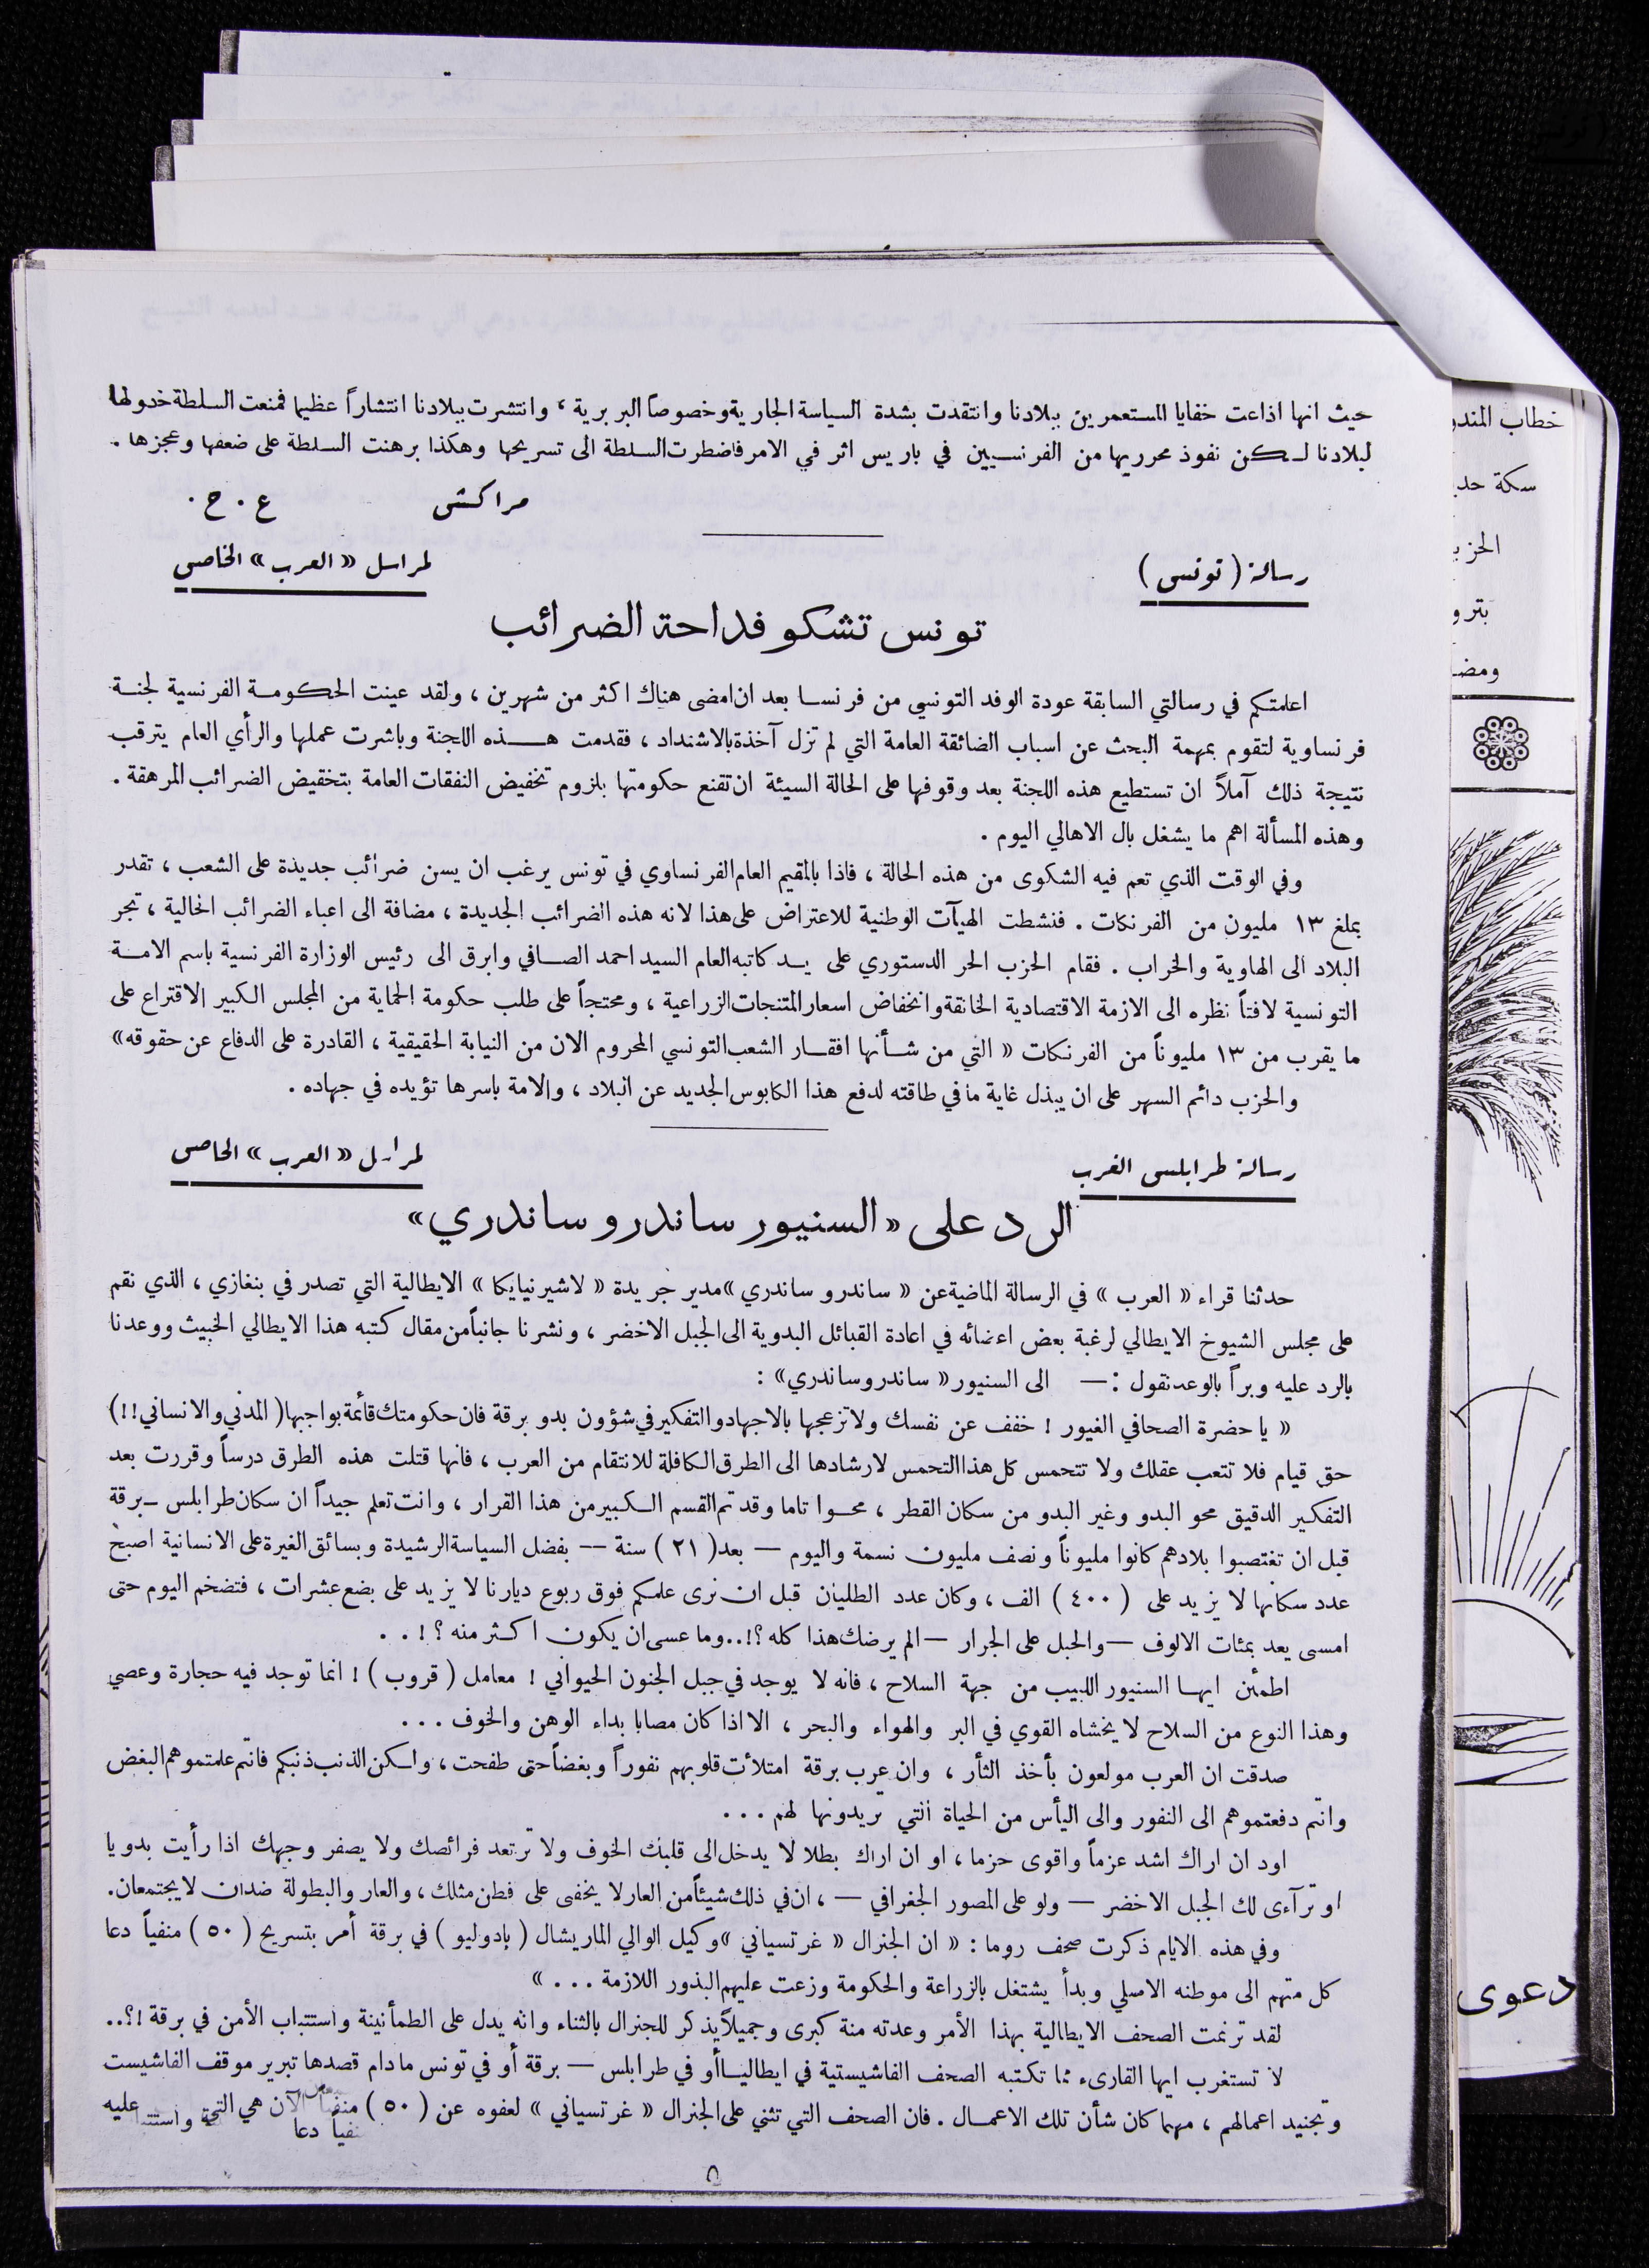 حيث انها اذاعت خفايا المستعمرين ببلادنا وانتقدت بشدة السياسة الجارية وخصوصاً البربرية ، وانتشرت ببلادنا انتشاراً عظيما فمنعت السلطة خدولها
لبلادنا لكن نفوذ محرريها من الفرنسيين في باريس اثر في الامر فاضطرت السلطة الى تسريحها وهكذا برهنت السلطة على ضعفها وعجزها .
مراكش ع . ح .
رسالة ( تونس ) لمراسل « العرب » الخاص
تونس تشكو فداحة الضرائب
اعلمتكم في رسالتي السابقة عودة الوفد التونسي من فرنسا بعد ان امضى هناك اكثر من شهرين ، ولقد عينت الحكومة الفرنسية لجنة
فرنساوية لتقوم بمهمة البحث عن اسباب الضائقة العامة التي لم تزل آخذة بالاشتداد ، فقدمت هذه اللجنة وباشرت عملها والرأي العام يترقب
نتيجة ذلك آملاً ان تستطيع هذه اللجنة بعد وقوفها على الحالة السيئة ان تقنع حكومتها بلزوم تخفيض النفقات العامة بتخفيض الضرائب المرهقة .
وهذه المسألة اهم ما يشغل بال الاهالي اليوم .
وفي الوقت الذي تعم فيه الشكوى من هذه الحالة ، فاذا بالمقيم العام الفرنساوي في تونس يرغب ان يسن ضرائب جديدة على الشعب ، تقدر
بملغ ١٣ مليون من الفرنكات . فنشطت الهيآت الوطنية للاعتراض على هذا لانه هذه الضرائب الجديدة ، مضافة الى اعباء الضرائب الحالية ، تجر
البلاد الى الهاوية والخراب . فقام الحزب الحر الدستوري على يد كاتبه العام السيد احمد الصافي وابرق الى رئيس الوزارة الفرنسية باسم الامة
التونسية لافتاً نظره الى الازمة الاقتصادية الخانقة وانخفاض اسعار المتنجات الزراعية ، ومحتجاً على طلب حكومة الحماية من المجلس الكبير الاقتراع على
ما يقرب من ١٣ مليوناً من الفرنكات « التي من شأنها افقار الشعب التونسي المحروم الان من النيابة الحقيقية ، القادرة على الدفاع عن حقوقه »
والحزب دائم السهر على ان يبذل غاية ما في طاقته لدفع هذا الكابوس الجديد عن البلاد ، والامة باسرها تؤيده في جهاده .
رسالة طرابلس الغرب لمراسل « العرب » الخاص
الرد على « السنيور ساندرو ساندري »
حدثنا قراء « العرب » في الرسالة الماضية عن « ساندرو ساندري » مدير جريدة « لاشيرنيايكا » الايطالية التي تصدر في بنغازي ، الذي نقم
على مجلس الشيوخ الايطالي لرغبة بعض اعضائه في اعادة القبائل البدوية الى الجبل الاخضر ، ونشرنا جانباً من مقال كتبه هذا الايطالي الخبيث ووعدنا
بالرد عليه وبراً بالوعد نقول : — الى السنيور « ساندرو ساندري » :
« يا حضرة الصحافي الغيور ! خفف عن نفسك ولا تزعجها بالاجهاد والتفكير في شؤون بدو برقة فان حكومتك قائمة بواجبها ( المدني والانساني !! )
حق قيام فلا تتعب عقلك ولا تتحمس كل هذا التحمس لارشادها الى الطرق الكافلة للانتقام من العرب ، فانها قتلت هذه الطرق درساً وقررت بعد
التفكير الدقيق محو البدو وغير البدو من سكان القطر ، محوا تاما وقد تم القسم الكبير من هذا القرار ، وانت تعلم جيداً ان سكان طرابلس – برقة
قبل ان تغتصبوا بلادهم كانوا مليوناً ونصف مليون نسمة واليوم — بعد ( ٢١ ) سنة — بفضل السياسة الرشيدة وبسائق الغيرة على الانسانية اصبح
عدد سكانها لا يزيد على ( ٤٠٠ ) الف ، وكان عدد الطليان قبل ان نرى علمكم فوق ربوع ديارنا لا يزيد على بضع عشرات ، فتضخم اليوم حتى
امسى يعد بمئات الالوف — والحبل على الجرار — الم يرضك هذا كله ؟!.. وما عسى ان يكون اكثر منه ؟ ! . .
اطمئن ايها السنيور اللبيب من جهة السلاح ، فانه لا يوجد في جبل الجنون الحيواني ! معامل ( قروب ) ! انما توجد فيه حجارة وعصي
وهذا النوع من السلاح لا يخشاه القوي في البر والهواء والبحر ، الا اذا كان مصابا بداء الوهن والخوف . . .
صدقت ان العرب مولعون بأخذ الثأر ، وان عرب برقة امتلأت قلوبهم نفوراً وبغضاً حتى طفحت ، ولكن الذنب ذنبكم فانتم علمتموهم البغض
وانتم دفعتموهم الى النفور والى اليأس من الحياة التي تريدونها لهم . . .
اود ان اراك اشد عزماً واقوى حزما ، او ان اراك بطلا لا يدخل الى قلبك الخوف ولا ترتعد فرائصك ولا يصفر وجهك اذا رأيت بدويا
او تراءى لك الجبل الاخضر — ولو على المصور الجغرافي — ، ان في ذلك شيئاً من العار لا يخفى على فطن مثلك ، والعار والبطولة ضدان لا يجتمعان.
وفي هذه الايام ذكرت صحف روما : « ان الجنرال « غرتسياني » وكيل الوالي الماريشال ( بادوليو ) في برقة أمر بتسريح ( ٥٠ ) منفياً دعا
كل منهم الى موطنه الاصلي وبدأ يشتغل بالزراعة والحكومة وزعت عليهم البذور اللازمة . . . »
لقد ترنمت الصحف الايطالية بهذا الأمر وعدته منة كبرى وجميلاً يذكر للجنرال بالثناء وانه يدل على الطمأنينة واستتباب الأمن في برقة !؟..
لا تستغرب ايها القارىء مما تكتبه الصحف الفاشيستية في ايطاليا أو في طرابلس — برقة أو في تونس ما دام قصدها تبرير موقف الفاشيست
وتجنيد اعمالهم ، مهما كان شأن تلك الاعمال . فان الصحف التي تثني على الجنرال « غرتسياني » لعفوه عن ( ٥٠ ) منفياً الآن هي التي عليه
٥
خطاب المندو
سكة حد
الحز
بترو
ومض
دعوى